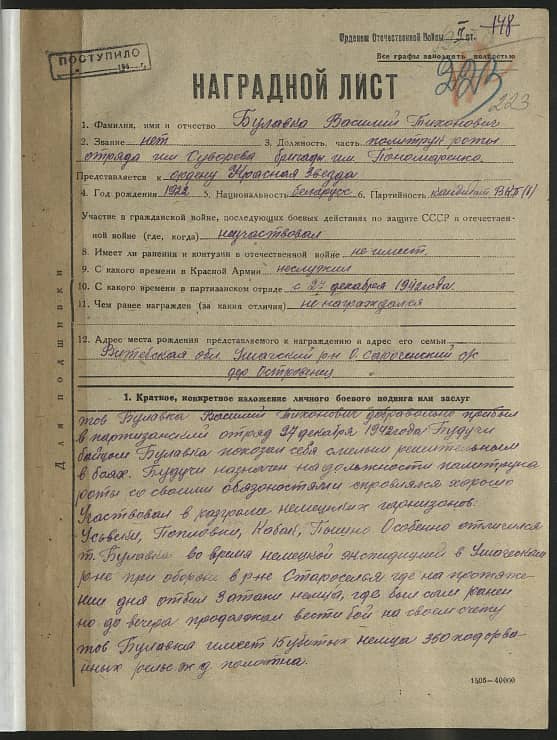 Орденом Отечественной Войны I ст. 148
Все графы заполнять полностью
ПОСТУПИЛО
194 г.
223
НАГРАДНОЙ ЛИСТ
223
1. Фамилия, имя и отчество Булавка Василий Тихонович
2. Звание нет 3. Должность, часть политрук роты
отряда им Суворова бригады им. Пономаренко.
Представляется к ордену Красная Звезда
4. Год рождения 1922 5. Национальность беларусс 6. Партийность кандидат ВКП(б)
Участие в гражданской войне, последующих боевых действиях по защите СССР и отечествен-
ной войне (где, когда) неучаствовал
8. Имеет ли ранения и контузии в отечественной войне не имеет
9. С какого времени в Красной Армии неслужил
10. С какого времени в партизанском отряде с 27 декабря 1942 года.
11. Чем ранее награжден (за какие отличия) не награждался
12. Адрес места рождения представляемого к награждению и адрес его семьи
Витебская обл. Ушачский р-н О. Сорочинский с/с
дер Островенец
Для подшивки
1. Краткое, конкретное изложение личного боевого подвига или заслуг
тов Булавка Василий Тихонович добравольно прибыл
в партизанский отряд 27 декабря 1942 года Будучи
бойцом Булавка показал себя смелым решительным
в боях. Будучи назначен на должности политрука
роты со своими обязоностями справлялся хорошо
Участвовал в разгроме немецких гарнизонов:
Усвеи, Поповки, Кабак, Особенно отличился
т. Булавка во время немецкой экспидицией в Ушачском
р-не при обороне в р-не Староселья где на протяже-
нии дня отбил 9 атаки немца, где был сам ранен
но до вечера продолжал вести бой на своем счету
тов Булавка имеет 15 убитых немца 360 подорва-
нных рельс ж.д. полотна.
1505—40000